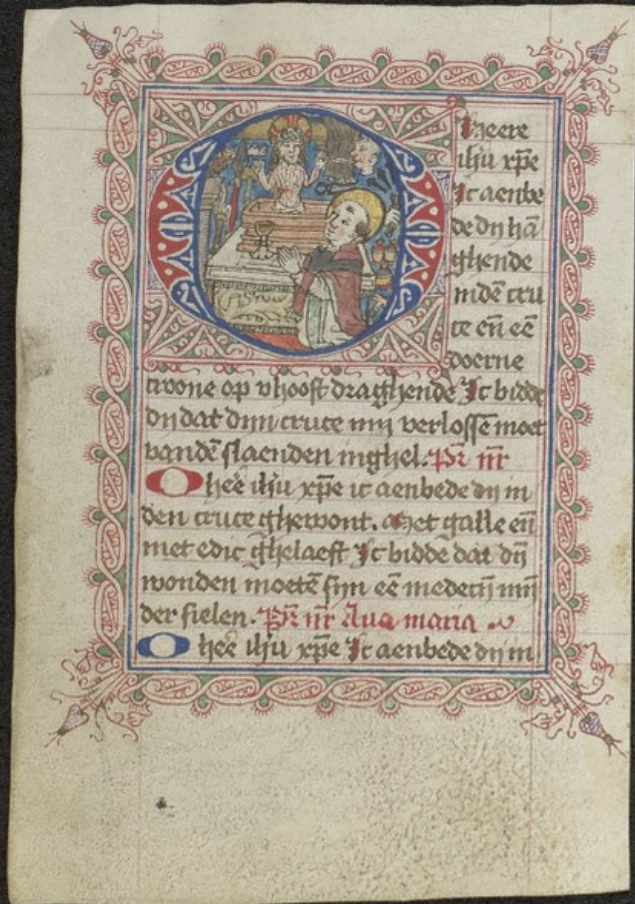 O heere
ihū xp̄e
Ic aenbe
de dy hā
ghende
indē cru
ce eñ eē
doerne
croone op v hooft draghende Ic bidde
dy dat dyn cruce my verlosse moet
vandē slaenden inghel. Pr̄ nr̄
O heē ihū xp̄e ic aenbede dy in
den cruce ghewont. Met galle eñ
met edic ghelaeft Ic bidde dat dȳ
wonden moetē syn eē medecȳ mȳ
der sielen. Pr̄ nr̄ Aua maria
O heē ihū xp̄e Ic aenbede dy in